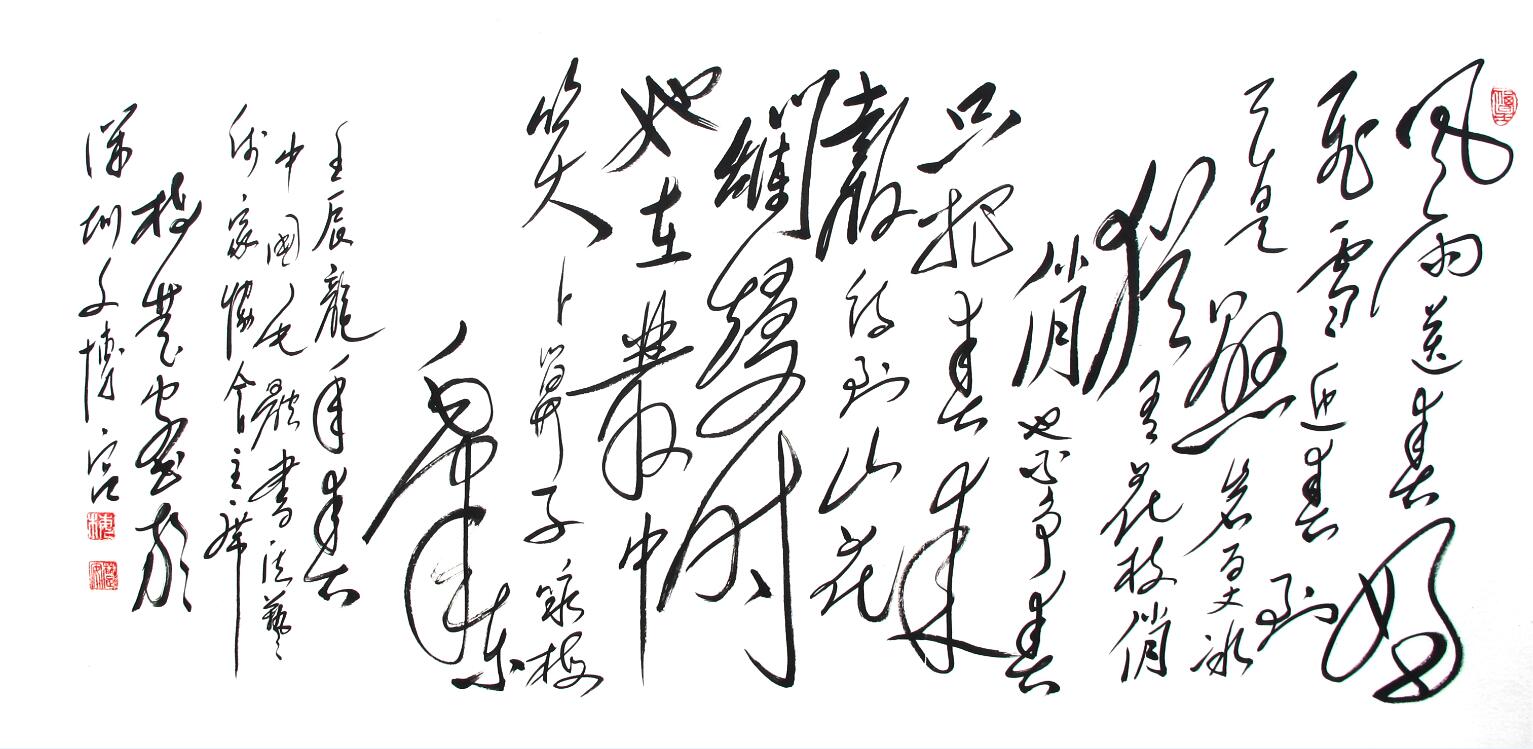 風雨送春歸
飛雪迎春到
已是
懸崖百丈冰
猶有花枝俏
俏也不爭春
只把春來
報待到山花
爛漫時
她在叢中
笑 卜算子 詠梅
毛澤東
壬辰龍年春
中國毛體書法藝
術家協會主席
深圳文博宮